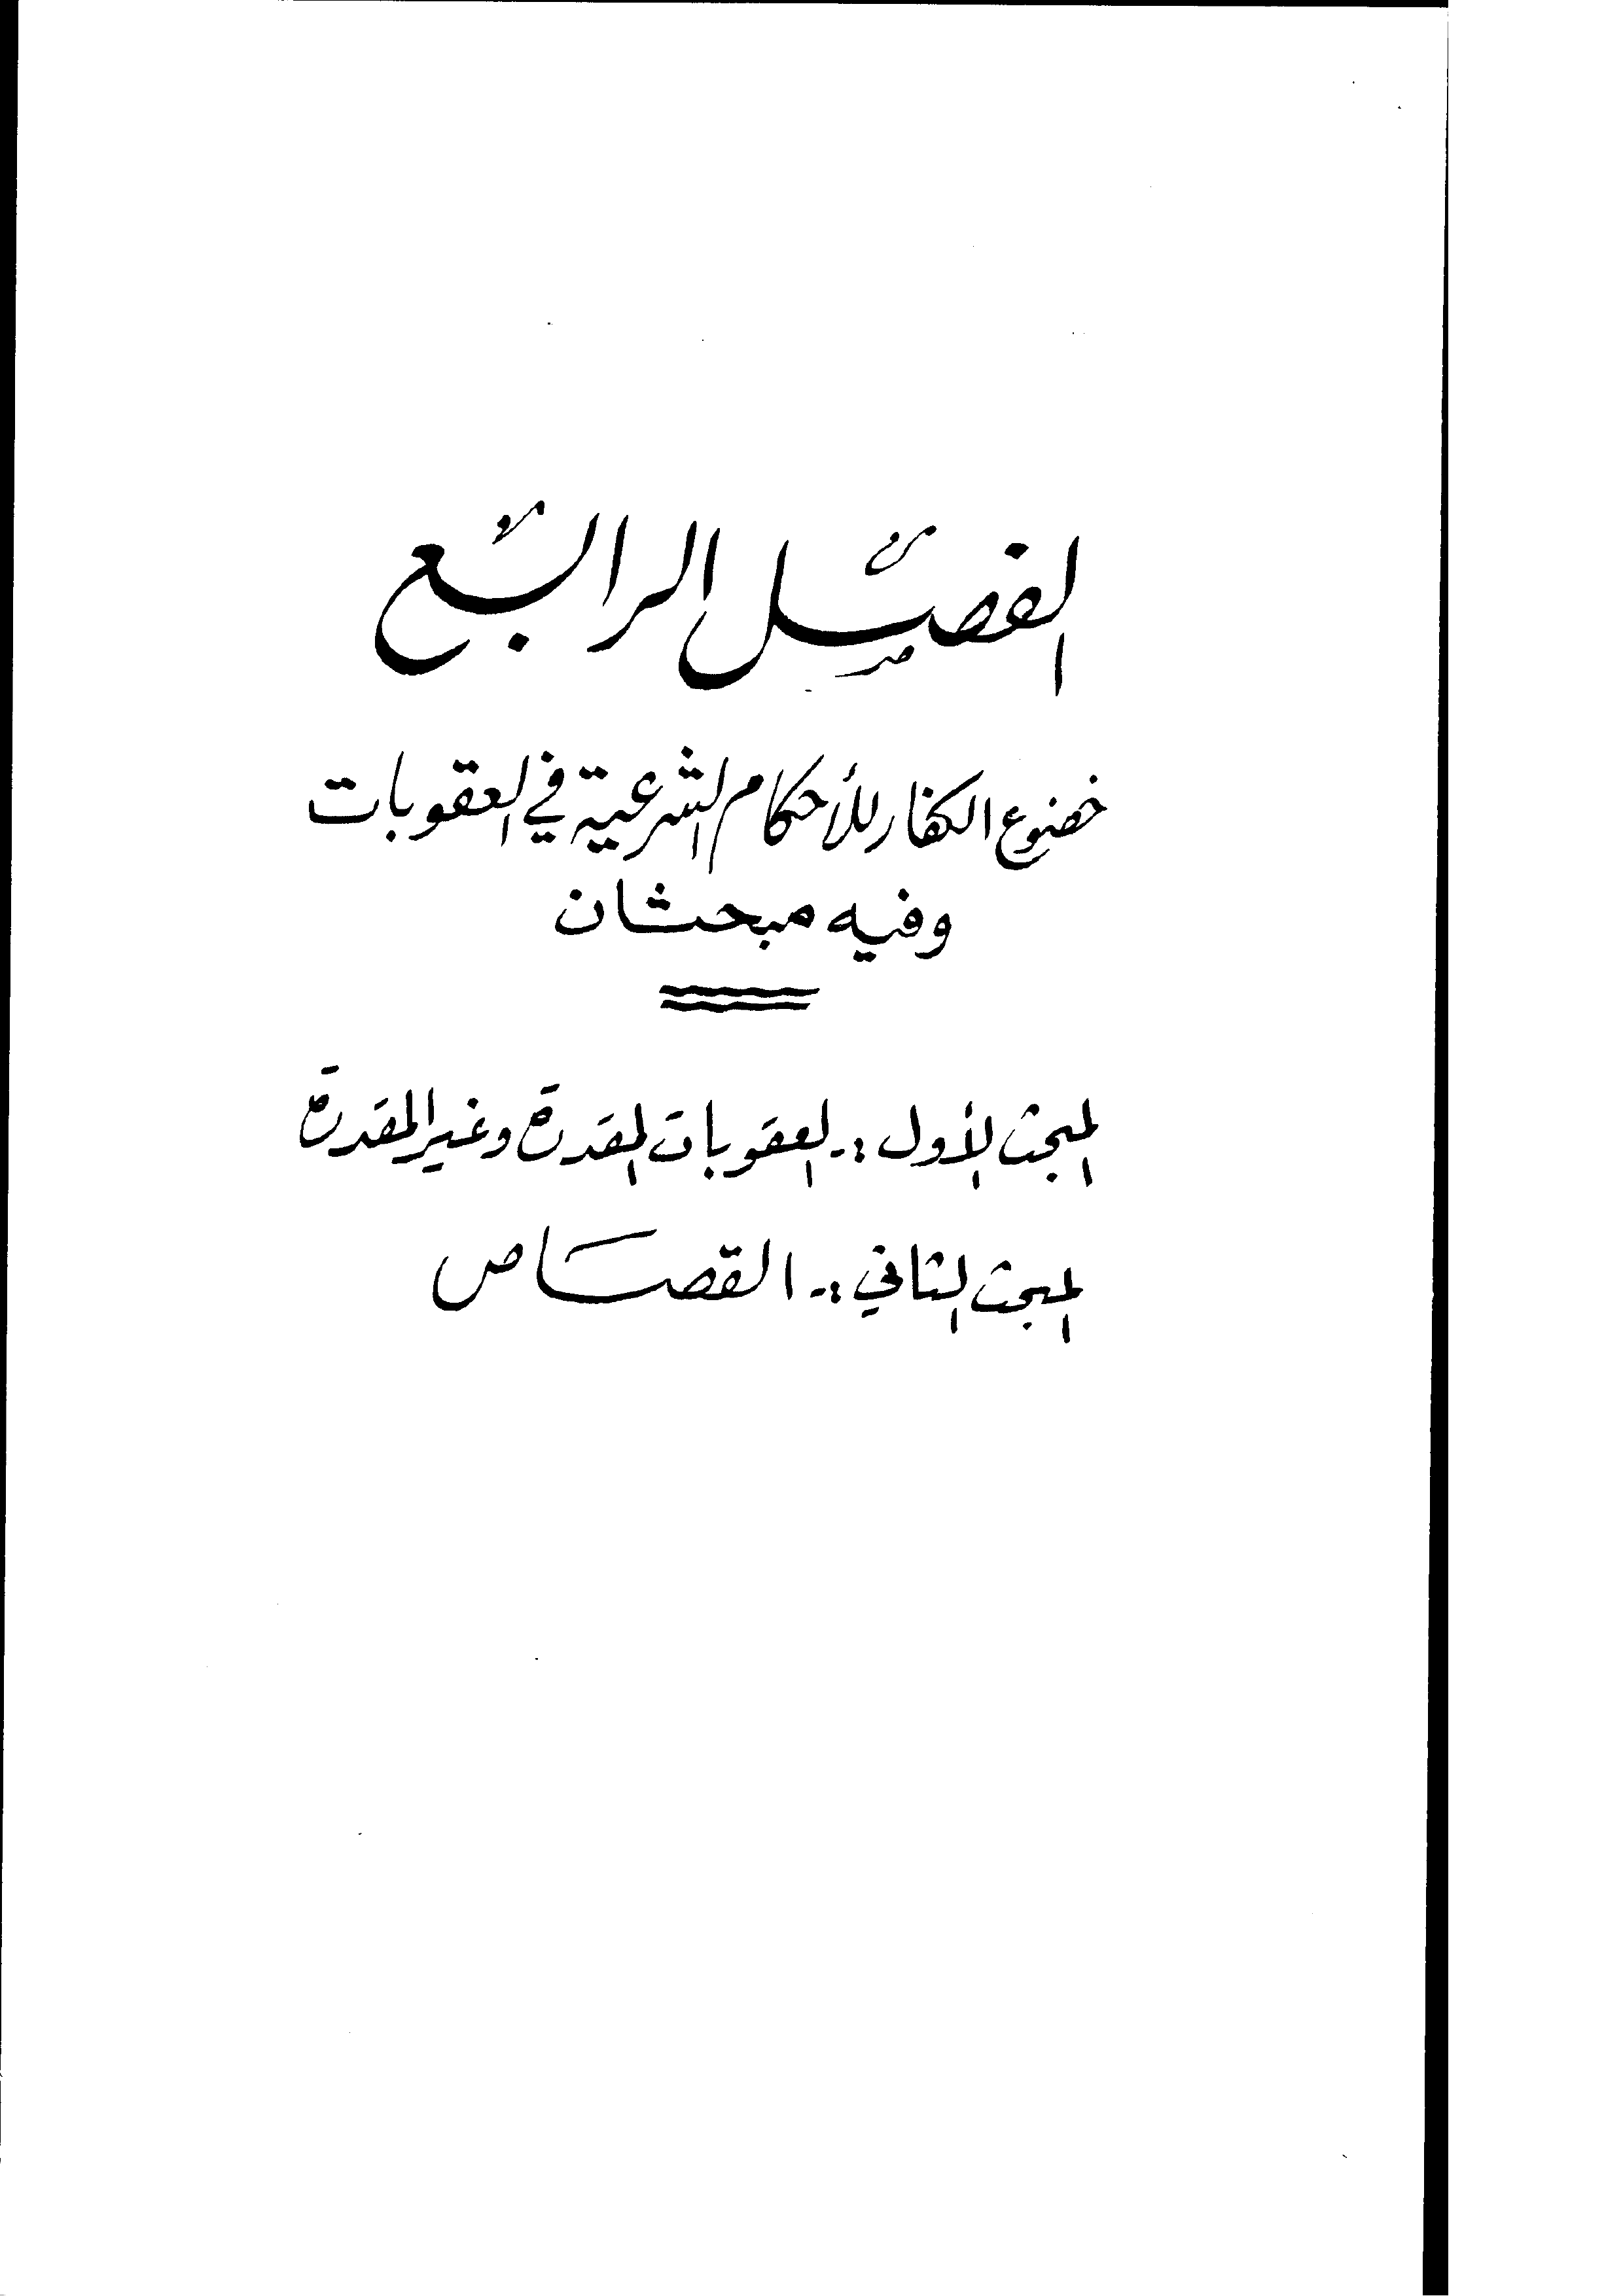 الفصل الرابع
خضوع الكفار للأحكام الشرعية في العقوبات
وفيه مبحثان
المبحث الأول :ـ العقوبات المقدرة وغير المقدرة
المبحث الثاني :ـ القصاص